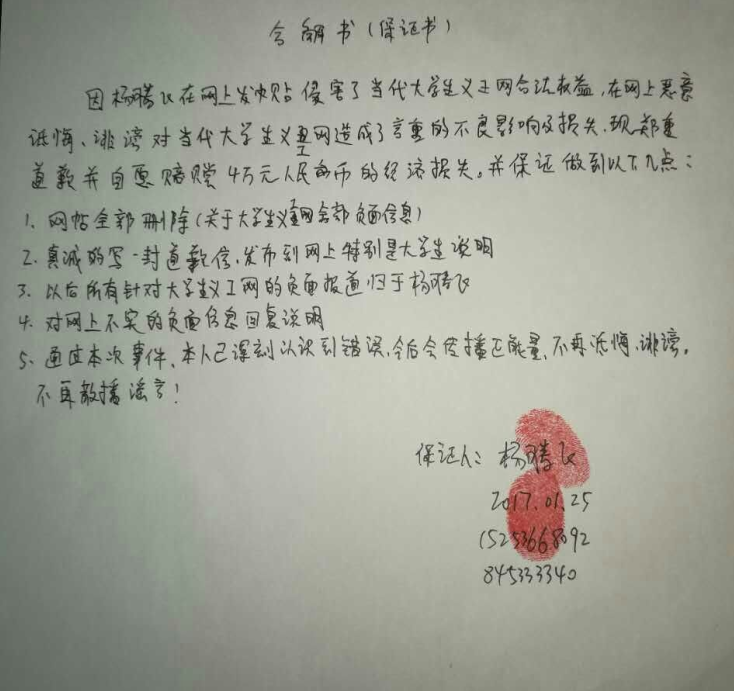 合解书(保证书)
因杨腾飞在网上发帖侵害了当代大学生义工网合法权益,在网上恶意
诋悔、诽谤对当代大学生义工网造成了言重的不良影响及损失,现郑重
道歉并自愿赔赏4万元人民币的经济损失。并保证做到以下几点:
1. 网帖全部删除(关于大学生义工网全部负面信息)
2. 真诚的写一封道歉信,发布到网上特别是大学生说明
3. 以后所有针对大学生义工网的负面报道归于杨腾飞
4. 对网上不实的负面信息回复说明
5、通过本次事件,本人已深刻认识到错误,今后会传播正能量,不再诋悔、诽谤。
不再散播谣言!
保证人:杨腾飞
2017.01.25
15253668092
845333340